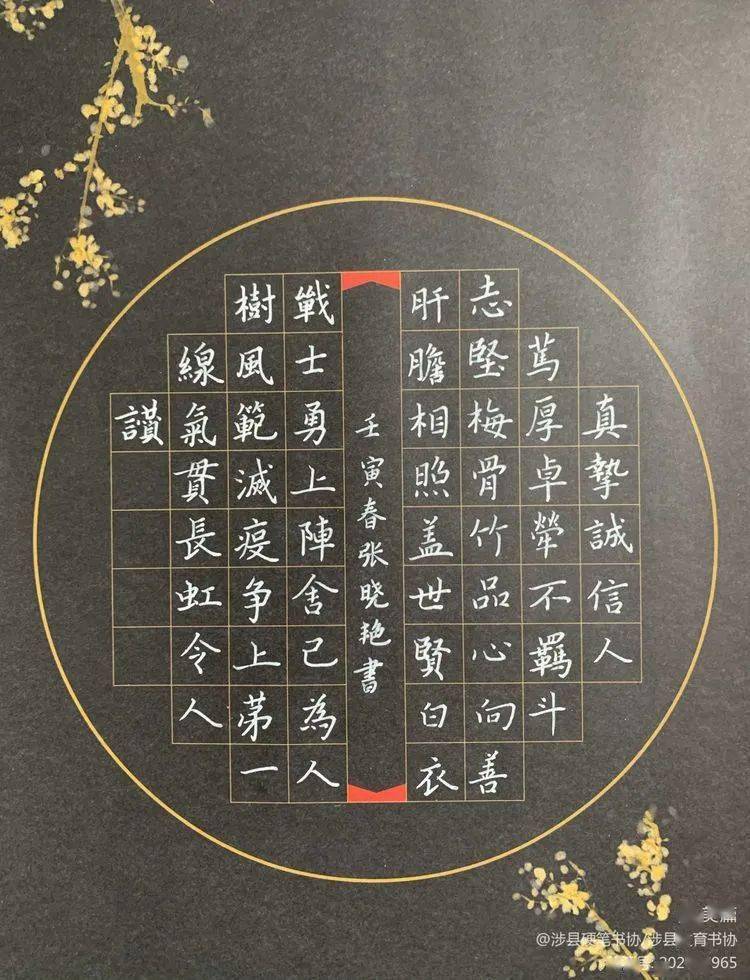 真摯誠信人
篤厚卓犖不羈斗
志堅梅骨竹品心向善
肝膽相照盖世賢白衣
壬寅春张晓艳書
戰士勇上陣舍己為人
樹風範滅疫争上第一
線氣貫長虹令人
讚
美篇
@涉县硬笔书协/涉县 育书协
202 965